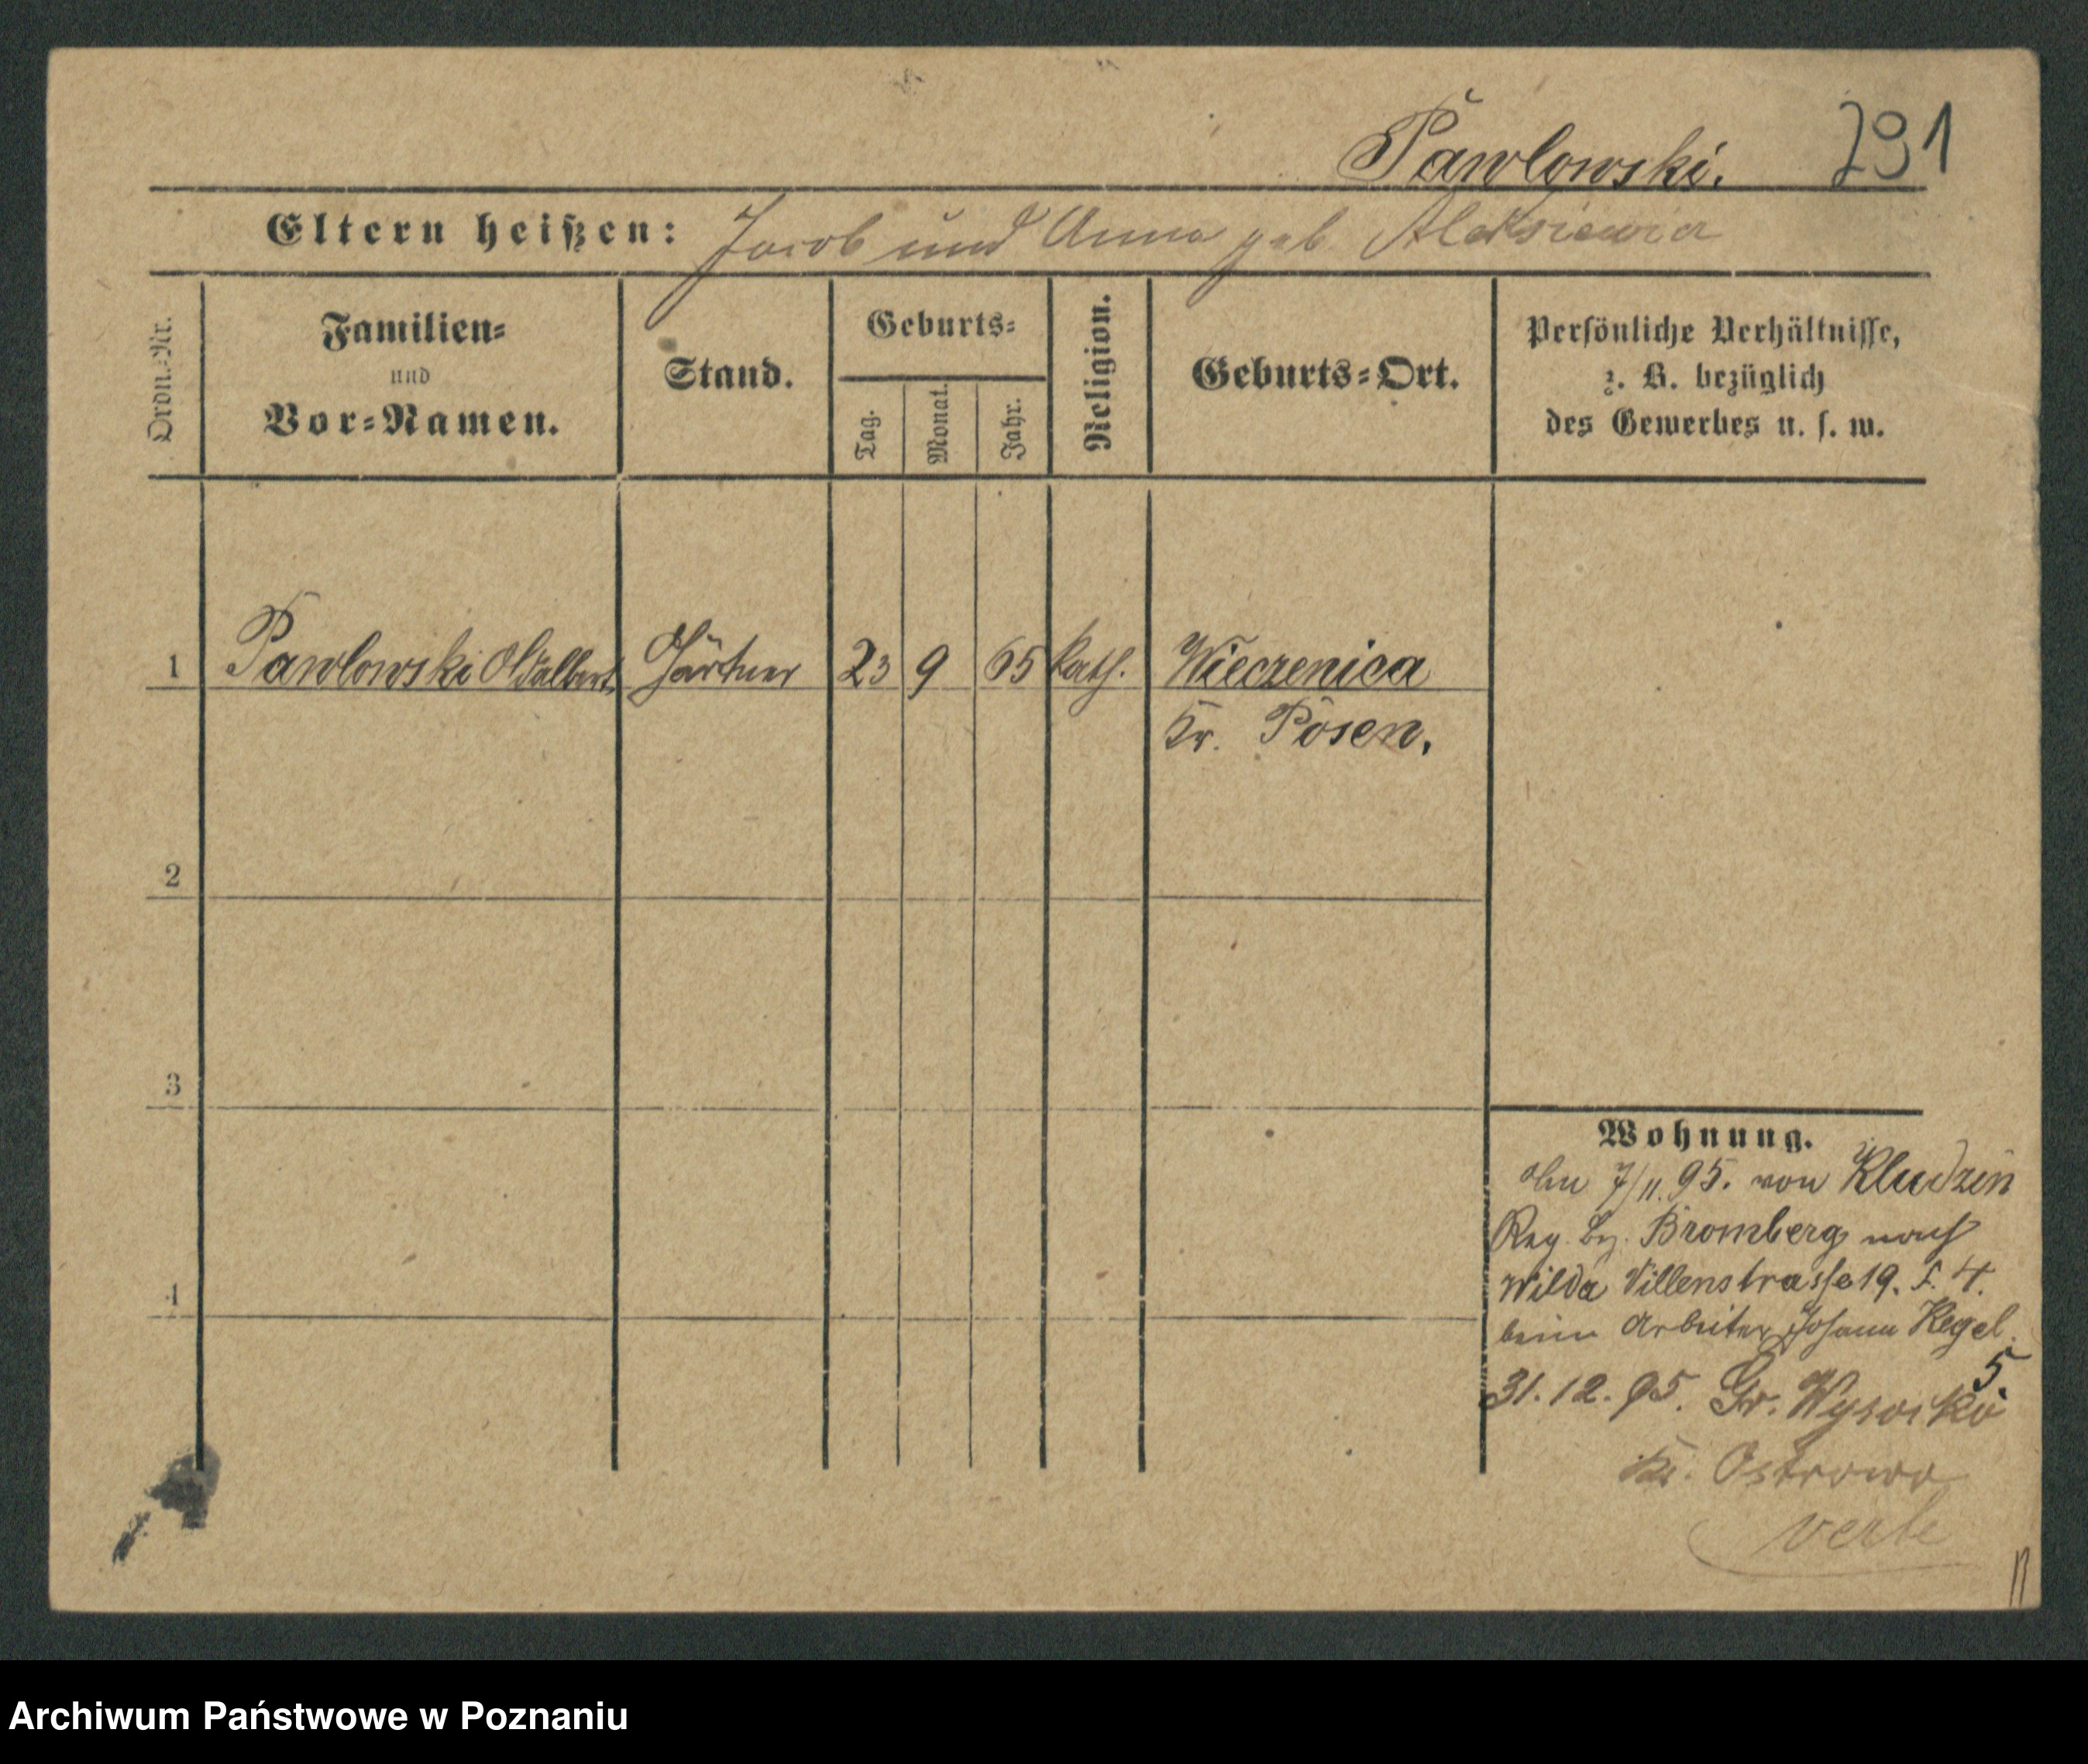 Pawlowski. 291
Eltern heißen: Jacob und Anna geb. Aleksiewicz
Ordn.-Nr.
Familien-
und
Vor-Namen.
Stand.
Geburts-
Tag.
Monat.
Jahr.
Religion.
Geburts-Ort.
Persönliche Verhältnisse,
z. B. bezüglich
des Gewerbes u. s. w.
1 Pawlowski Adalbert Gärtner 23 9 65 kath. Wieczenica
Kr. Posen.
2
3
4
Wohnung.
Am 7/11. 95. von Kludzin
Reg. Bz. Bromberg nach
Wilda Villenstrasse 19. S. 4.
beim Arbeiter Johann Kegel.
5
31.12.95. Gr. Wysocko
Kr. Ostrowo
Archiwum Państwowe w Poznaniu